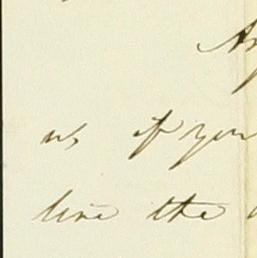 us if you
line the